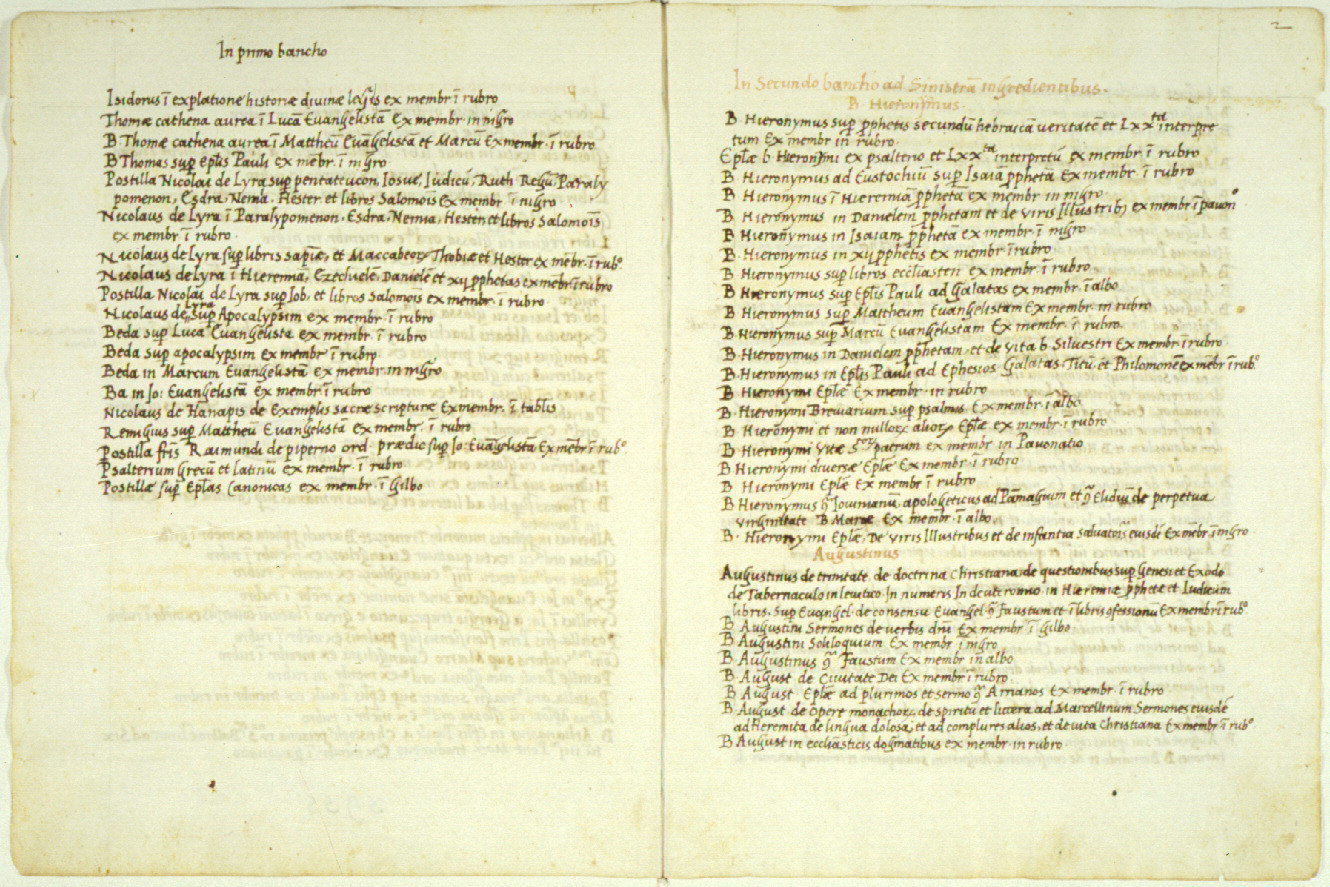 In primo bancho
Isidorus ī explatione historiæ divinæ legis ex membr ī rubro
Thomæ cathena aurea ī Lucā Evangelistā Ex membr in nigro
B Thomæ cathena aurea ī Mattheū Evangelistā et Marcū Ex membr. ī rubro
B Thomas sup eplis Pauli ex mēbr. ī nigro
Postilla Nicolai de Lyra sup pentateucon, Iosue, Iudicū, Ruth Regū, Paraly
pomenon, Esdra, Nemia, Hester et libros Salomois Ex membr ī nigro
Nicolaus de Lyra ī Paralypomenon, Esdra, Nemia, Hester et libros Salomoīs
ex membr ī rubro.
Nicolaus de Lyra sup libris sapiæ, et Maccabeoꝝ Thobiæ et Hester ex mēbr. ī rub.º
Nicolaus de Lyra ī Hieremiā, Ezechielē, Danielē et xij pphetas ex mēbr ī rubro
Postilla Nicolai de Lyra sup Iob, et libros Salomois ex membr ī rubro
Nicolaus de Lyra sup Apocalypsim ex membr ī rubro
Beda sup Lucā Evangelista ex membr ī rubro
Beda sup apocalypsim ex membr ī rubro
Beda in Marcum Evangelistā ex membr in nigro
Ba in Io: Evangelistā Ex membr ī rubro
Nicolaus de Hanapis de Exemplis sacræ scripturæ Ex membr. ī tablis
Remigius sup Mattheū Evangelistā Ex membr. ī rubro
Postilla fris Raimundi de piperno ord. prædic sup Io: Evangelistā Ex mēbr ī rub.º
Psalterium grecū et latinū ex membr. ī rubro
Postillæ sup Eplas Canonicas ex membr. ī gilbo
2
In Secundo bancho ad Sinistrā ingredientibus.
B Hieronymus.
B Hieronymus sup pphetis secundū hebraicā veritatē et Lxx.ta interpre
tum Ex membr in rubro.
Eplæ b. Hieronymi ex psalterio et Lxx.ta interpretū ex membr ī rubro
B. Hieronymus ad Eustochiū sup Isaiā pphetā Ex membr. ī rubro
B Hieronymus ī Hieremiā pphetā ex membr in nigro
B Hieronymus in Danielem pphetam et de viris Illustribȝ ex membr ī pavon
B Hieronymus in Isaiam pphetā ex membr. ī nigro
B. Hieronymus in xij pphetis ex membr ī rubro
B Hieronymus sup libros ecclīasten ex membr. ī rubro
B Hieronymus sup Eplis Pauli ad Galatas ex membr. ī albo
B Hieronymus sup Mattheum Evangelistam Ex membr in rubro
B Hieronymus sup Marcū Evangelistam Ex membr. ī rubro.
B. Hieronymus in Danielem pphetam, et de vita b Silvestri Ex membr ī rubro
B. Hieronymus in Eplis Pauli ad Ephesios Galatas, Titū, et Philomonē ex mēbr ī rub.º
B Hieronymi Eplæ Ex membr. in rubro
B. Hieronymi Breviarium sup psalmis Ex membr ī albo
B Hieronymi et non nulloꝝ alioꝝ Eplæ ex membr. ī rubro
B Hieronymi Vitæ S.orum patrum ex membr in Pavonatio
B Hieronymi diversæ Eplæ Ex membr. ī rubro
B Hieronymi Eplæ Ex membr ī rubro
B Hieronymus 9ͣ Iovinianū, apologeticus ad Pāmagium et 9ͣ Elidiū de perpetua
virginitate B Mariæ Ex membr. ī albo.
B. Hieronymi Eplæ, De Viris Illustribus et de infantia Salvatoris eiusdē Ex mēbr. ī nigro
Augustinus
Augustinus de trinitate de doctrina Christiana, de questionibus sup Genesi et Exodo
de Tabernaculo in levitico In numeris In deuteronomio in Hieremie pphete et Iudicum
libris, Sup Evangel. de consensu Evangel. 9ͣ Faustum et ī libris 9fessionū Ex membr ī rub.º
B Augustini Sermones de verbis dni Ex membr ī gilbo
B Augustini Soliloquium Ex membr ī nigro
B Augustinus 9ͣ Faustum Ex membr in albo
B August de Civitate Dei Ex membr ī rubro
B August Eplæ ad plurimos et sermo 9ͣ Arrianos Ex membr. ī rubro
B August de Opere monachoꝝ de spiritu et littera ad Marcellinum Sermones eiusdē
ad Heremita de lingua dolosa, et ad complures alios, et de vita Christiana Ex membr ī rub.º
B August in ecclīasticis dogmatibus ex membr. in rubro